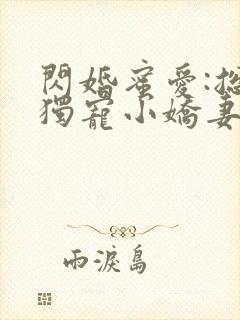 閃婚蜜愛:
獨寵小嬌妻
雨淚島